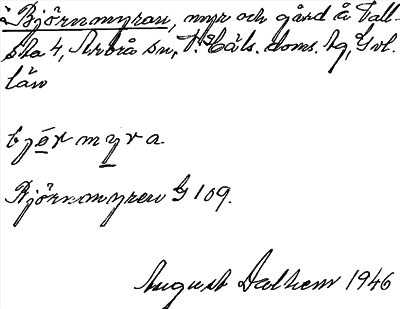 Björnmyran, myr och gård å Vall-
sta 4, Arbrå sn, V. Häls. doms. hg, Gvl.
län
björmyra
Björnmyren G 109.
August Dalhem 1946